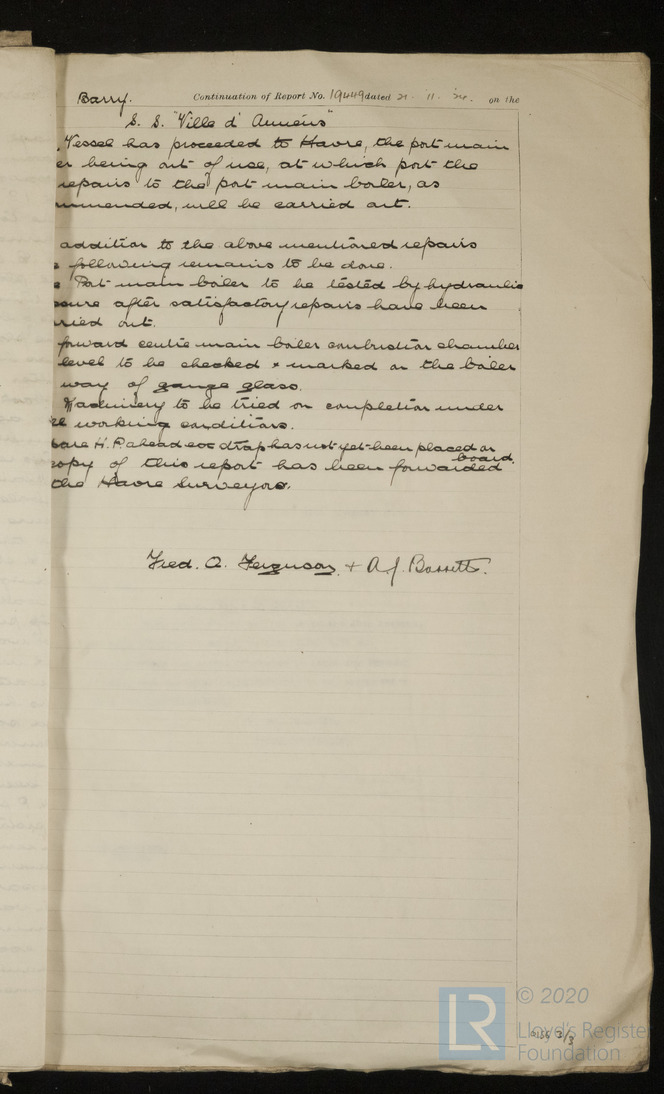 Barry. Continuation of Report No. 19449 dated 21. 11. 24. on the
S. S. "Ville d' Amiens"
Vessel has proceeded to Havre, the port main
er being out of use, at which port the
repairs to the port main boiler, as
mmended, will be carried out.
addition to the above mentioned repairs
following remains to be done.
Port main boiler to be tested by hydraulic
ssure after satisfactory repairs have been
rried out.
forward centre main boiler combustion chamber
level to be checked & marked on the boiler
way of gauge glass.
Machinery to be tried on completion under
working conditions.
pare H.P. ahead ecc strap has not yet been placed on
board.
copy of this report has been forwarded
the Havre Surveyors.
Fred. A. Ferguson. + A. J. Bassett.
LR
© 2020
Lloyd's Register
Foundation
2/3